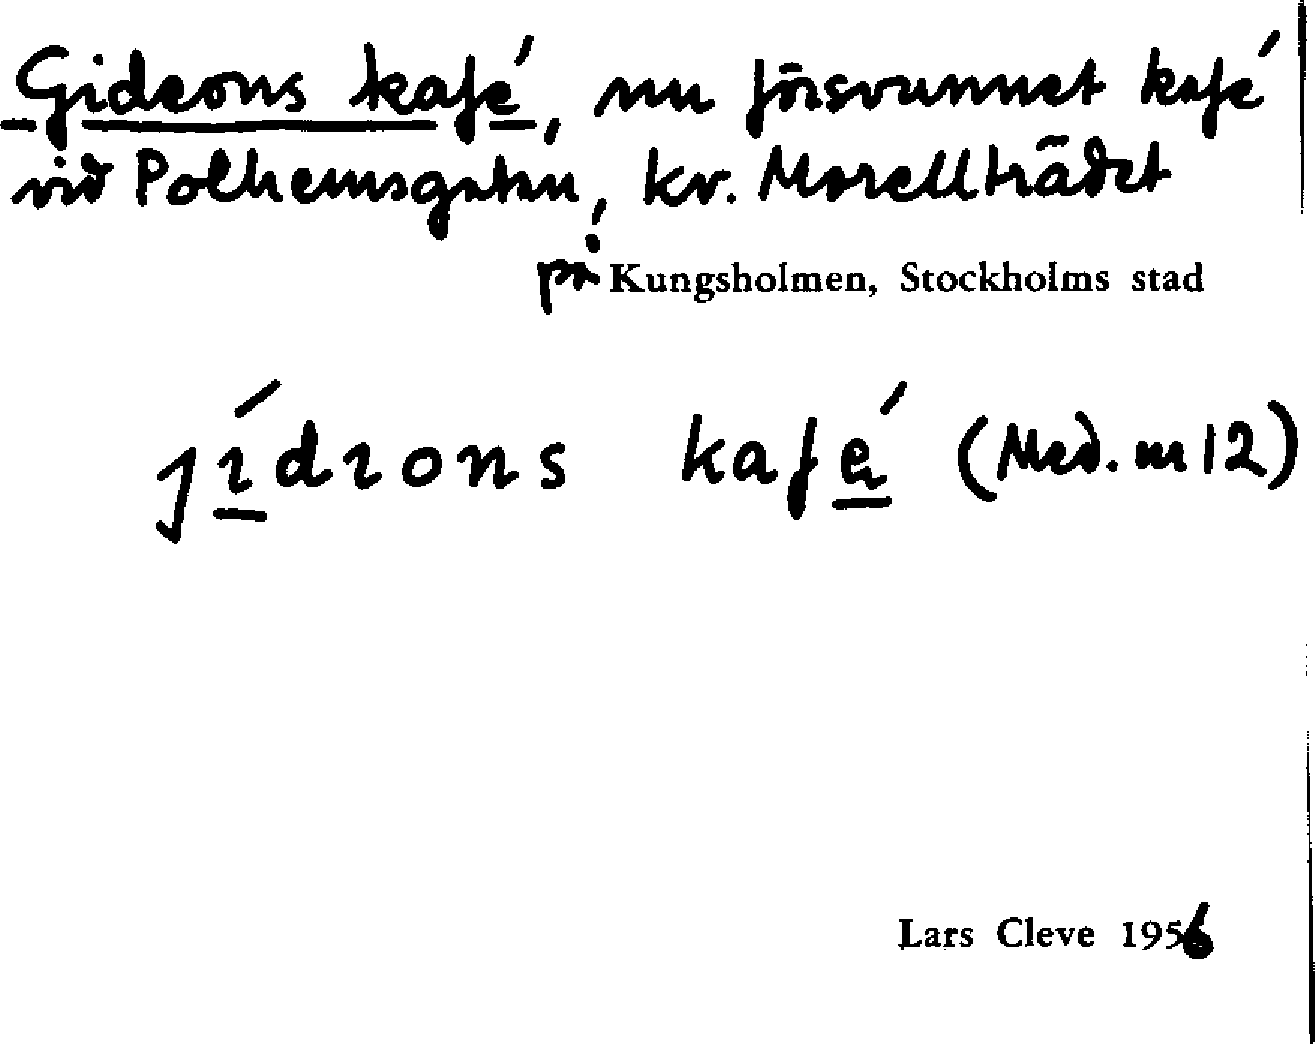 Gideons kafé, nu försvunnet kafé
vid Polhemsgatan, kv. Morellträdet
på Kungsholmen, Stockholms stad
jı́dıons kafé (Med. nr 12)
Lars Cleve 1956